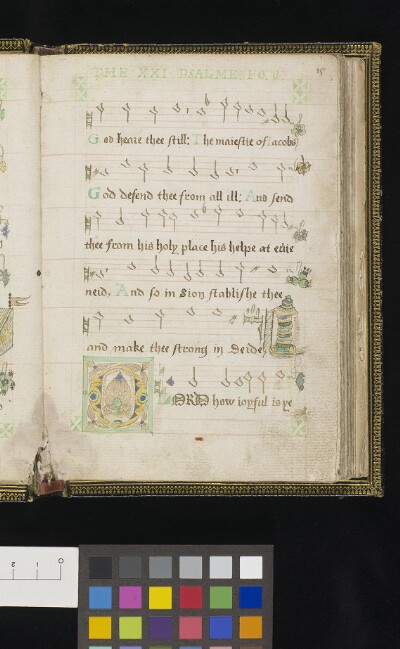 THE XXI PSALME
God heare thee still: The maiestie of Iacobs
God defend thee from all ill: And send
thee from his holy place his helpe at eúie
neid, And so in Sion stablishe thee
and make thee strong in deide,
O LORD how ioyful is ye